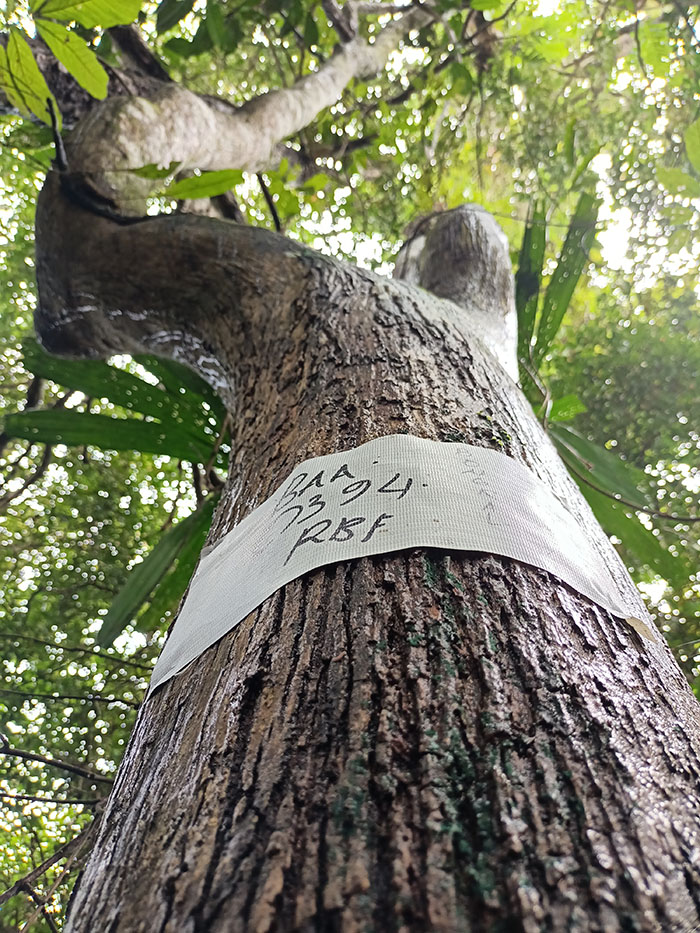 BAA
7394
RBF